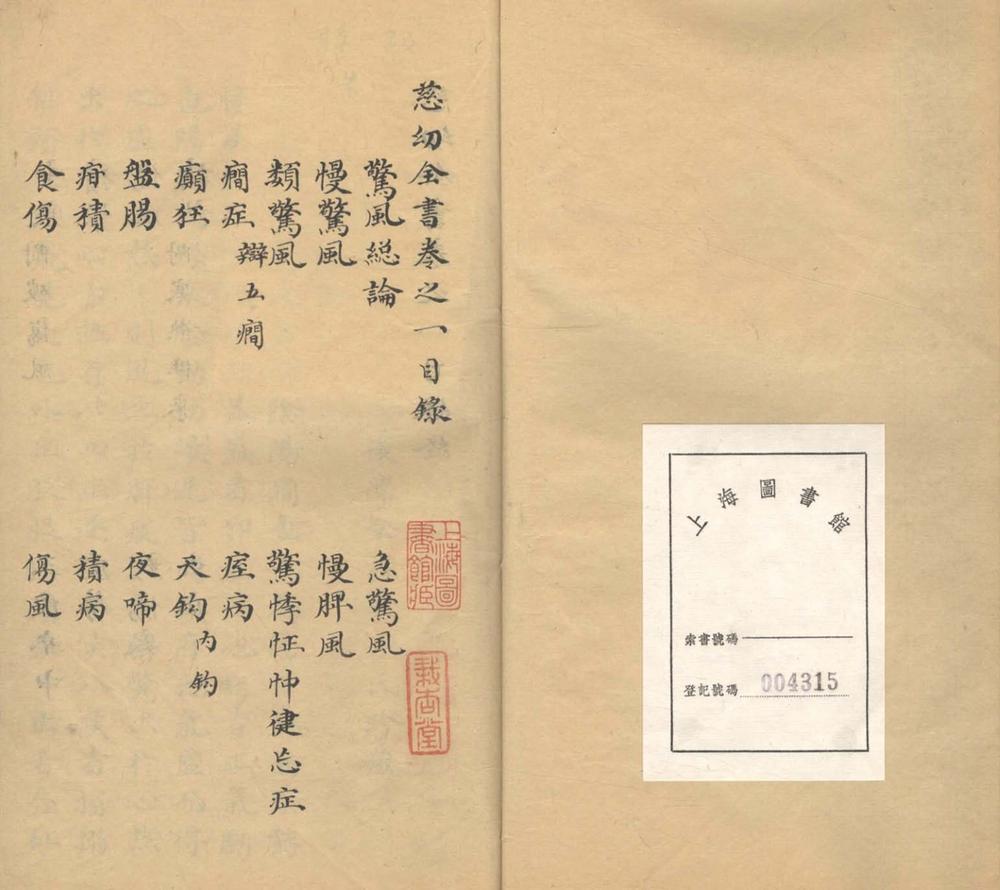 上海圖書館
索書號碼
登記號碼 004315
慈幼全書卷之一目錄
上海圖書館藏
栽杏堂
驚風総論 急驚風
慢驚風 慢脾風
類驚風 驚悸怔忡徤忘症
癇症 辯五癇 痓病
癲狂 天鈎 内鈎
盤腸 夜啼
疳積 積病
食傷 傷風